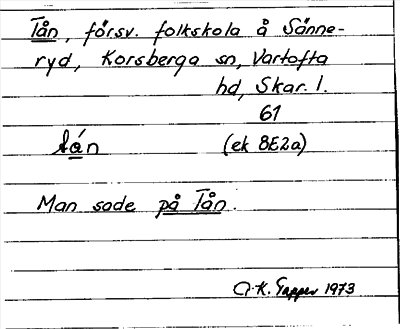 Tån, försv. folkskola å Sånne-
ryd, Korsberga sn, Vartofta
hd, Skar. l.
61
tǻn (ek 8E2a)
Man sade på Tån.
A-K. Tapper 1973